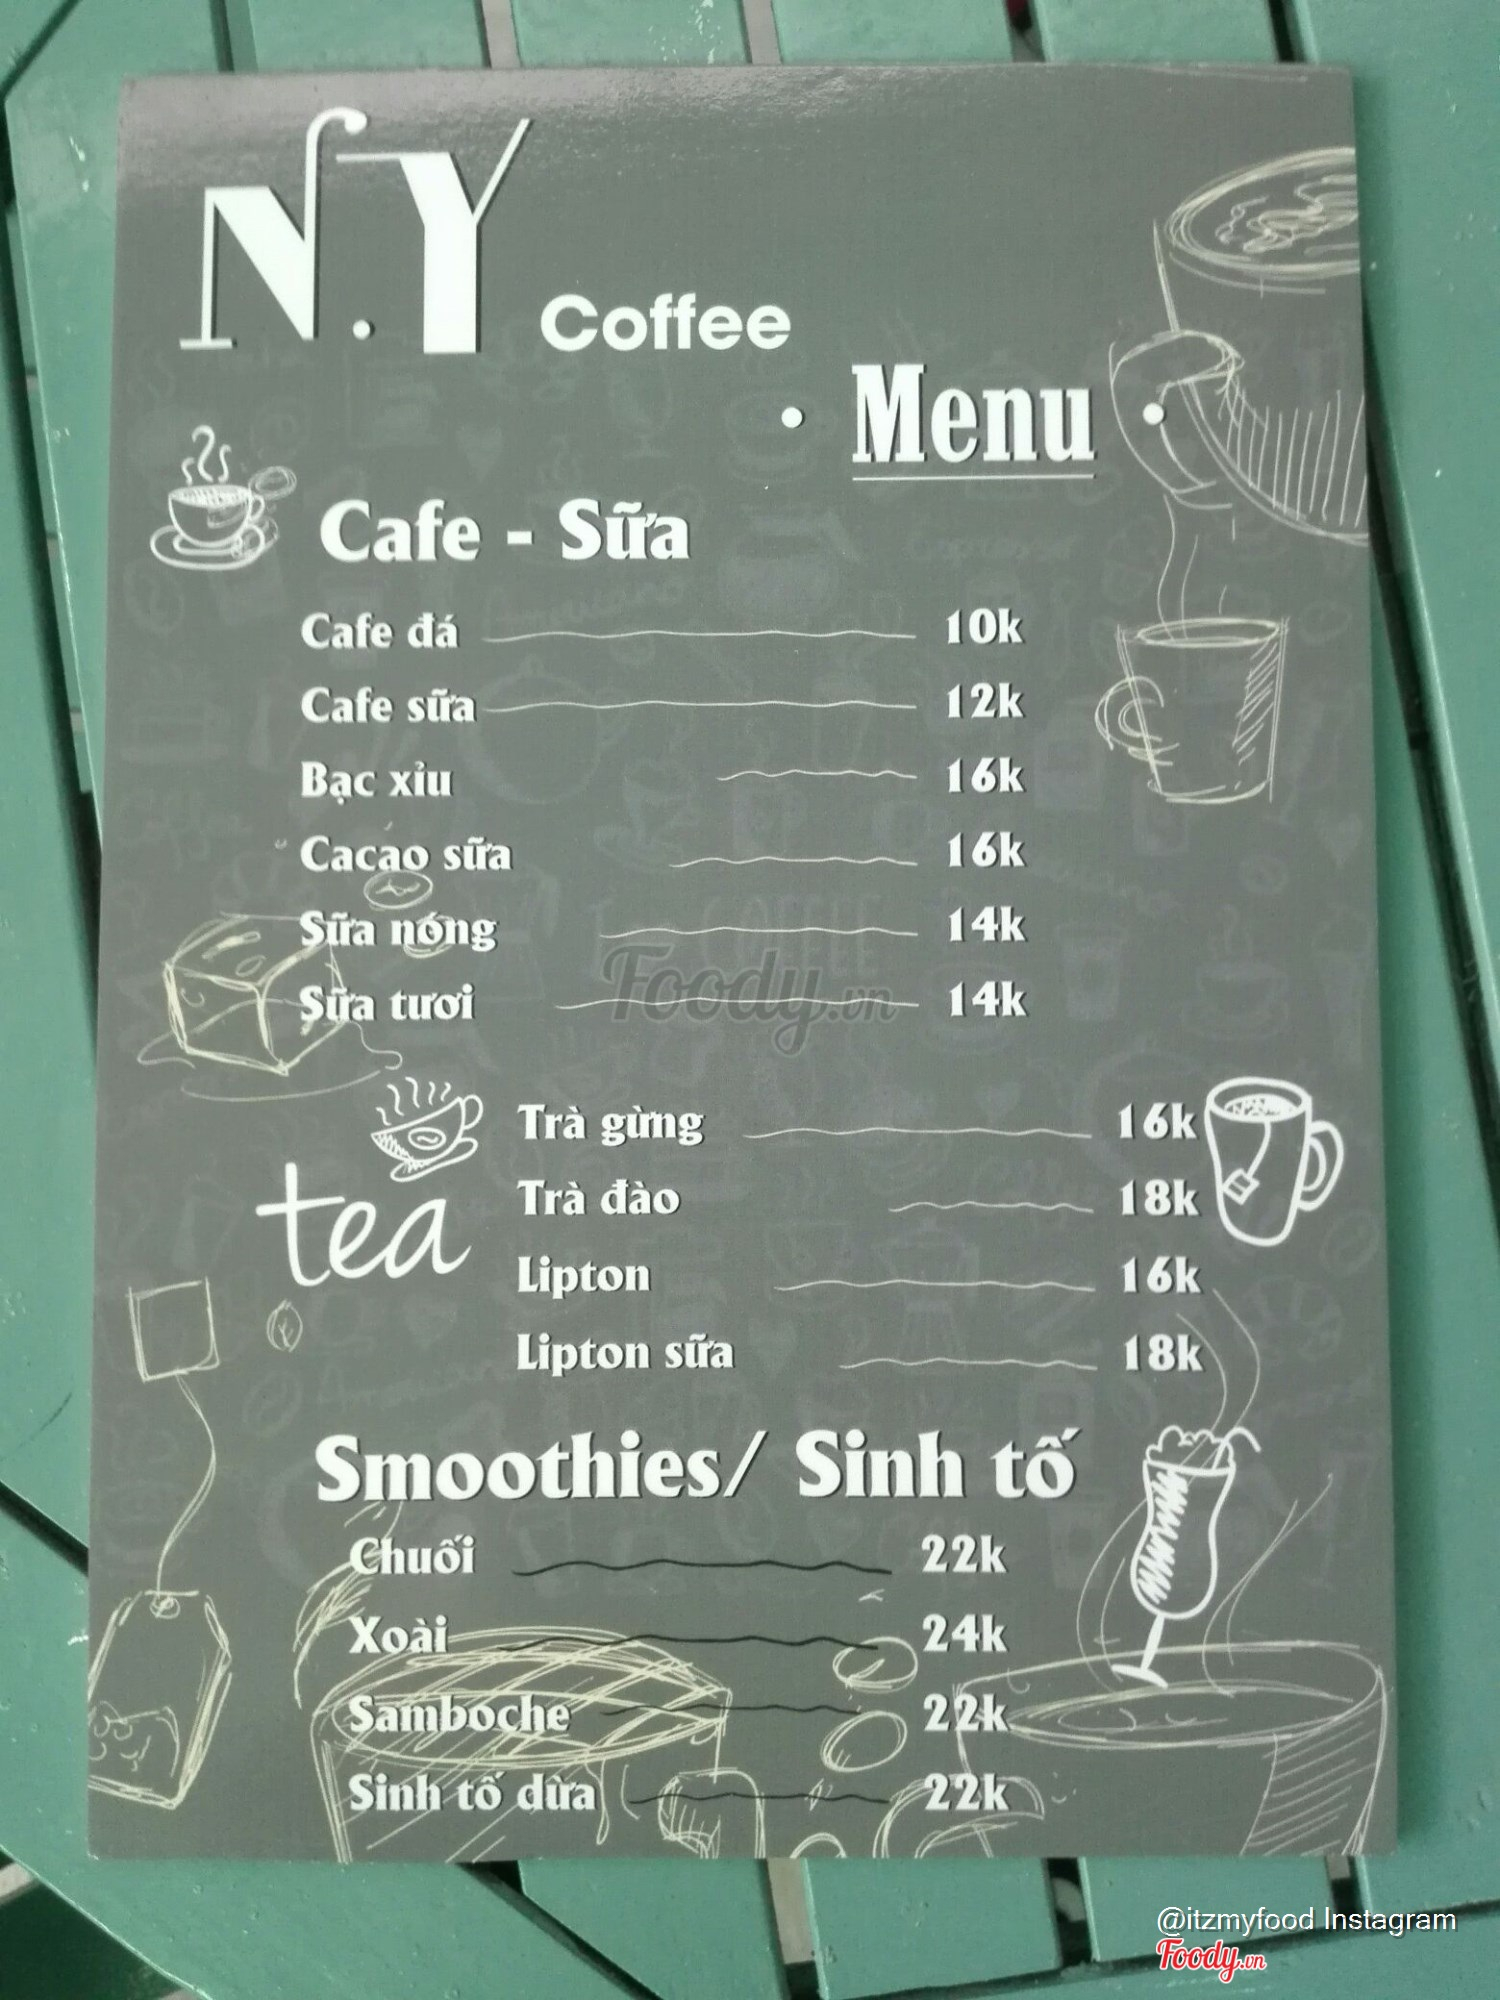 N.Y Coffee
• Menu •
Cafe - Sữa
Cafe đá 10k
Cafe sữa 12k
Bạc xỉu 16k
Cacao sữa 16k
Sữa nóng 14k
Sữa tươi 14k
COFFEE
Foody.vn
tea
Trà gừng 16k
Trà đào 18k
Lipton 16k
Lipton sữa 18k
Smoothies/ Sinh tố
Chuối 22k
Xoài 24k
Samboche 22k
Sinh tố dừa 22k
@itzmyfood Instagram
Foody.vn